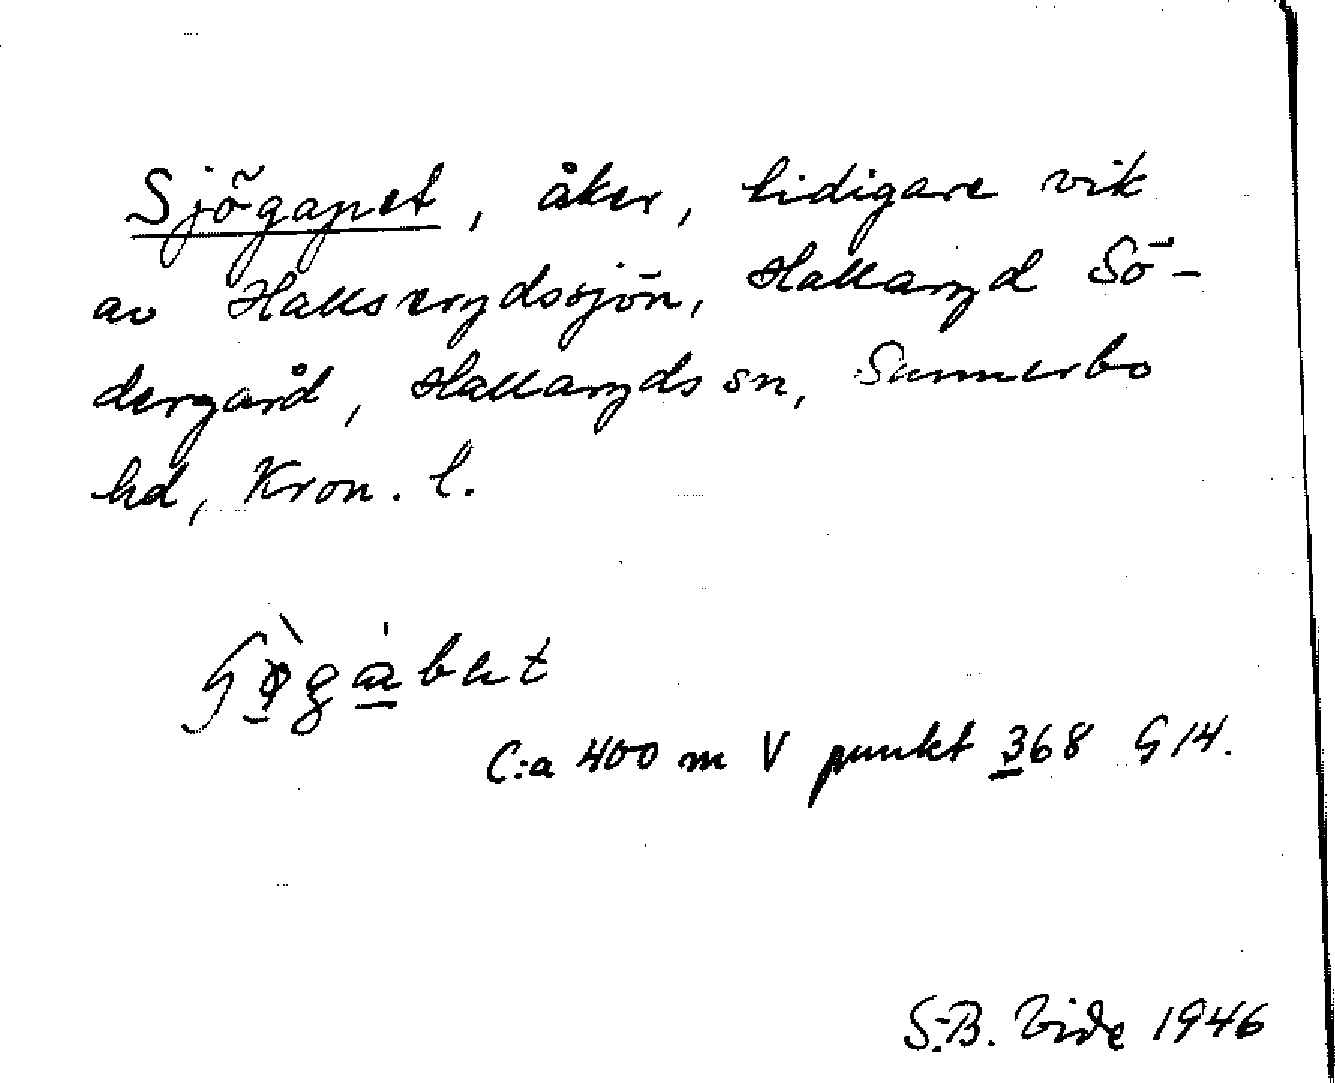 Sjögapet, åker, tidigare vik
av Hallsrydssjön, Hallaryd Sö-
dergård, Hallaryds sn, Sunnerbo
hd, Kron. l.
C:a 400 m V punkt 368 G 14.
S.-B. Vide 1946